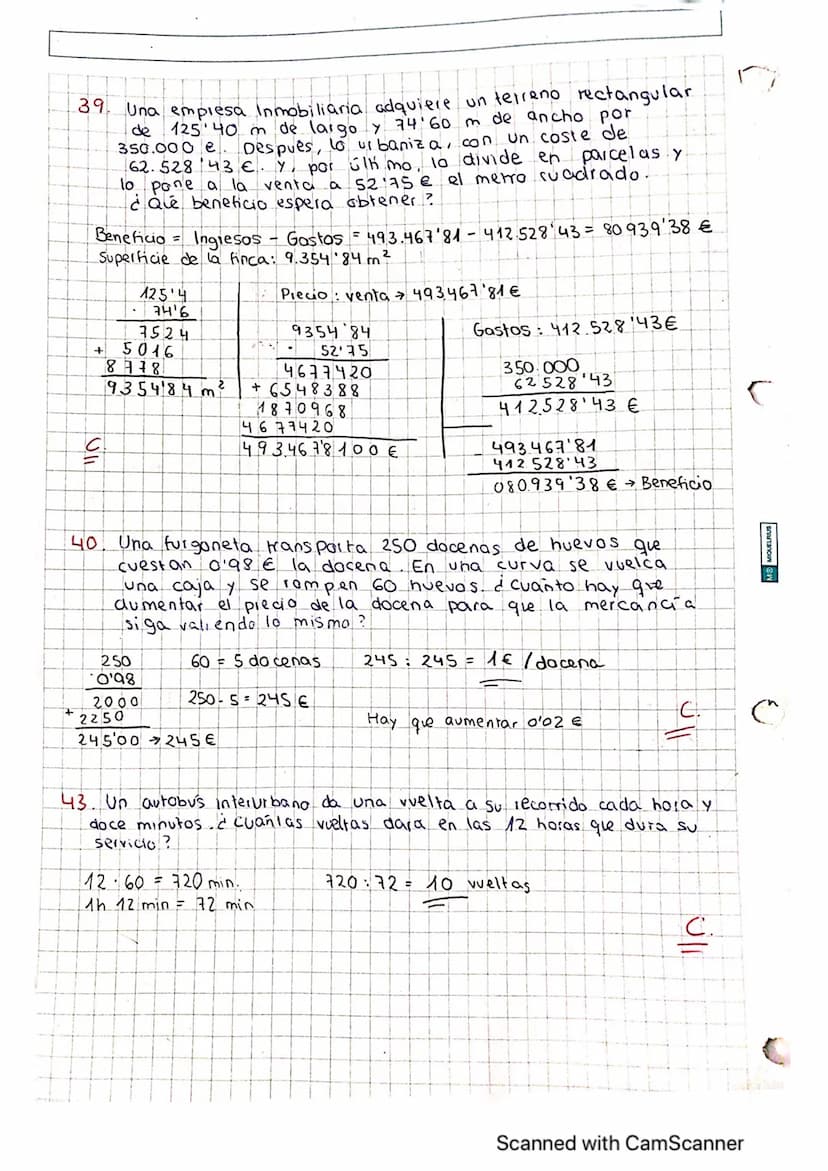 39. Una empresa Inmobiliaria adquiere un terreno rectangular
de 125'40 m de largo y 74'60 m de ancho por
350.000 e. Después, lo urbaniza, con un coste de
62.528'43 €. Y, por último, lo divide en parcelas y
lo pone a la venta a 52'75 € el metro cuadrado.
¿Qué beneficio espera obtener?
Beneficio = Ingresos - Gastos = 493.467'81 - 412.528'43 = 80939'38 €
Superficie de la finca: 9.354'84 m²
125'4
· 74'6
7524
+ 5016
8778
9354'84 m²
C.
Precio: venta → 493.467'81 €
9354'84
· 52'75
4677420
+ 6548388
1870968
4677420
493.467'8100 €
Gastos: 412.528'43 €
350.000
62528'43
412.528'43 €
493.467'81
- 412528'43
080.939'38 € → Beneficio
40. Una furgoneta transporta 250 docenas de huevos que
cuestan 0'98 € la docena. En una curva se vuelca
una caja y se rompen 60 huevos. ¿Cuánto hay que
aumentar el precio de la docena para que la mercancía
siga valiendo lo mismo?
250
· 0'98
2000
+ 2250
245'00 → 245 €
60 = 5 docenas
250 - 5 = 245 €
245 : 245 = 1 € / docena
Hay que aumentar 0'02 €
C.
43. Un autobús interurbano da una vuelta a su recorrido cada hora y
doce minutos. ¿Cuántas vueltas dará en las 12 horas que dura su
servicio?
12 · 60 = 720 min.
1h 12 min = 72 min
720 : 72 = 10 vueltas
C.
MIQUELRIUS
Scanned with CamScanner